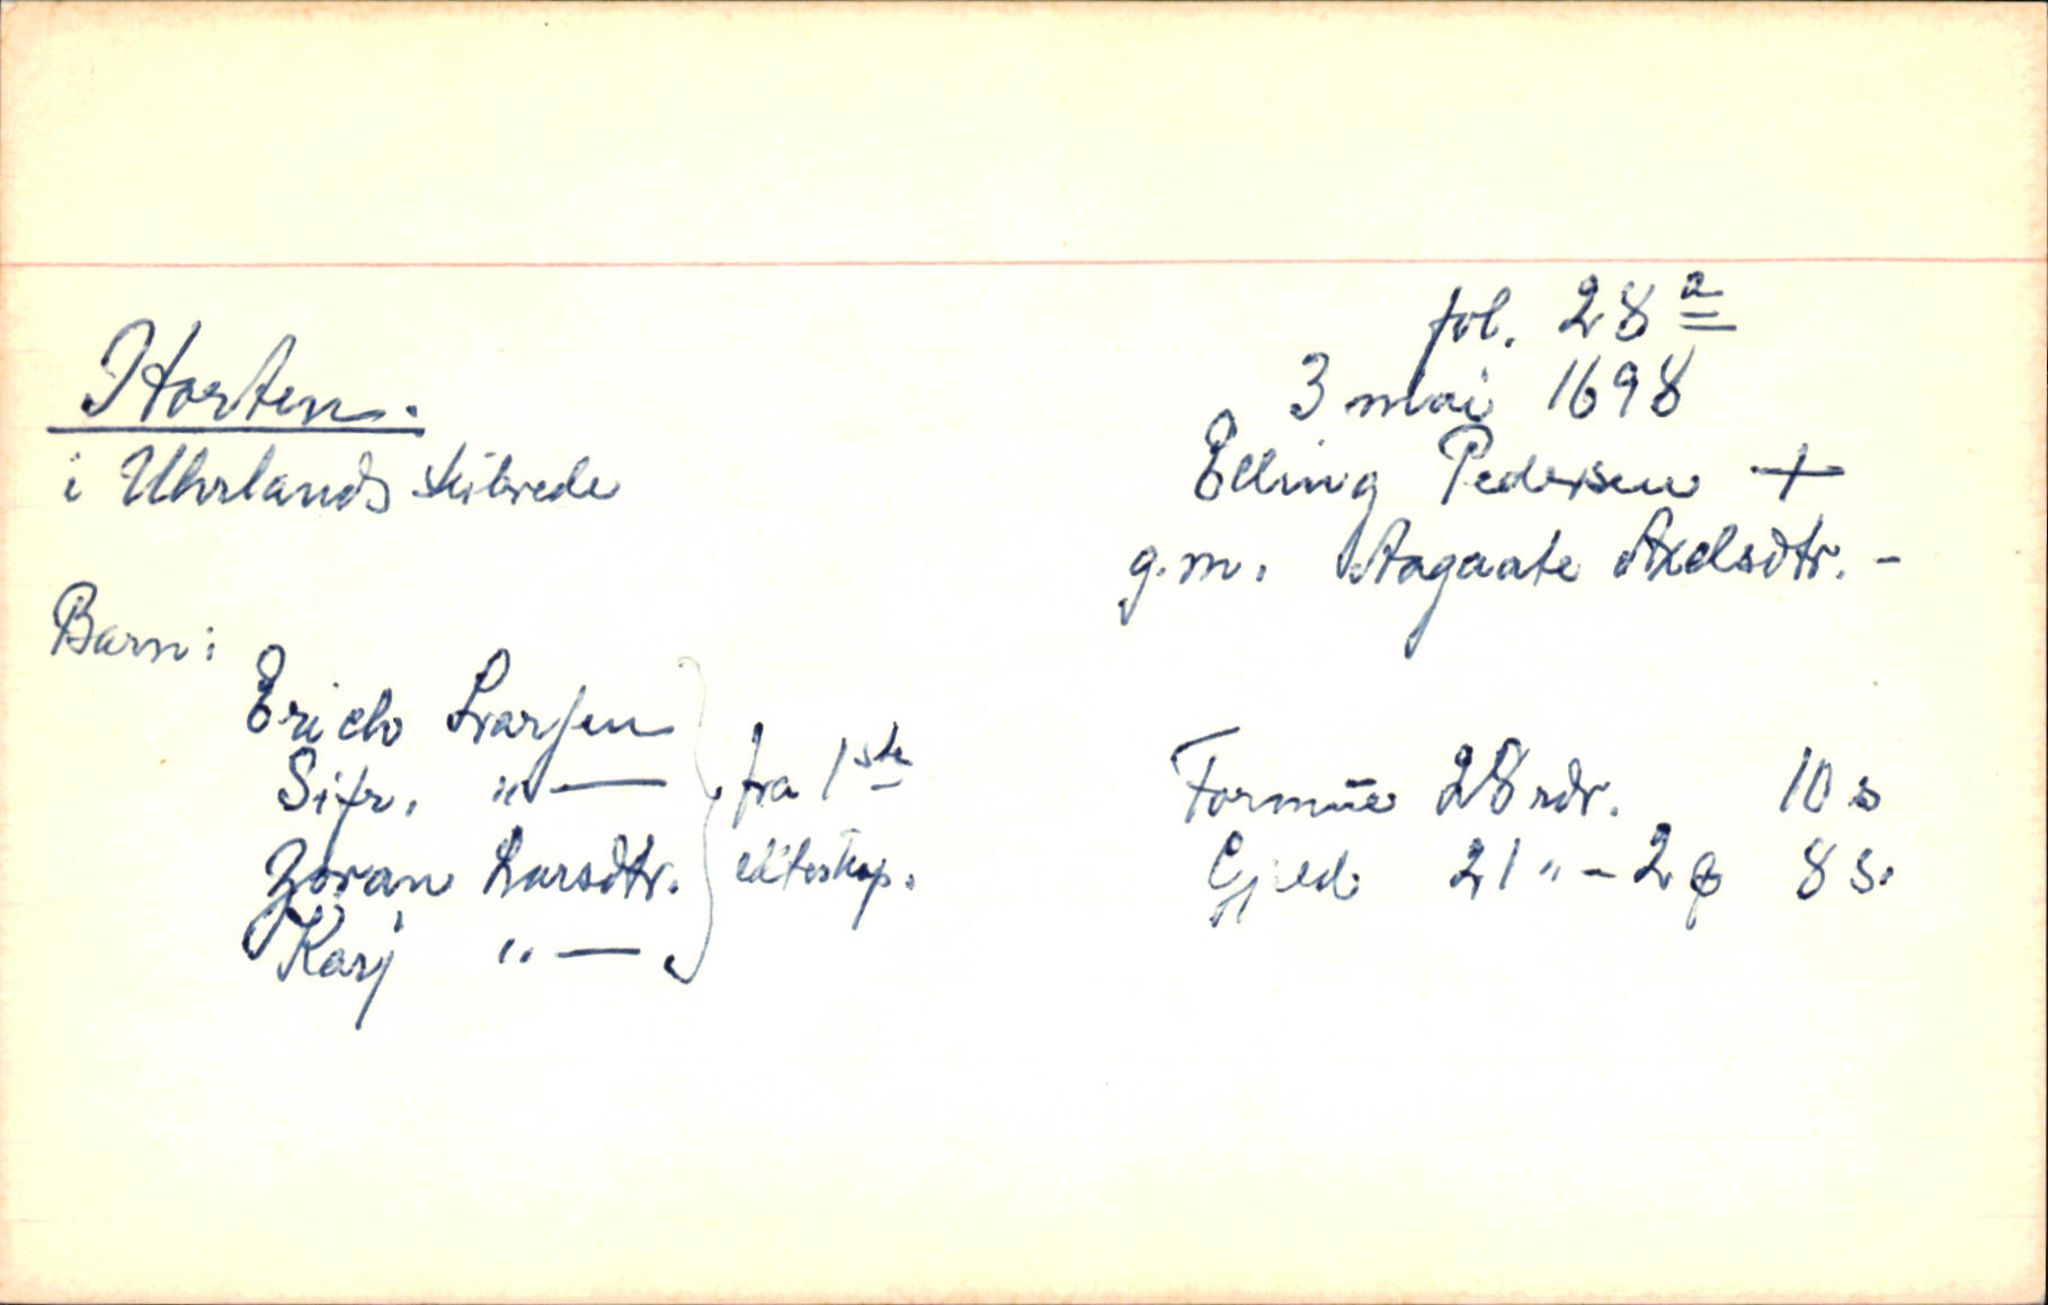 fol. 28 a
Horten.
3 mai 1698
i Uhrlands skibrede
Elling Pedersen +
g.m. Aagaate Axelsdtr. -
Barn:
Erich Larsen
Sifr. "—
Jøran Larsdtr.
Karj "—
fra 1ste
ekteskap.
Formue 28 rdr. 10 s
Gjeld 21 " - 2 8 s.